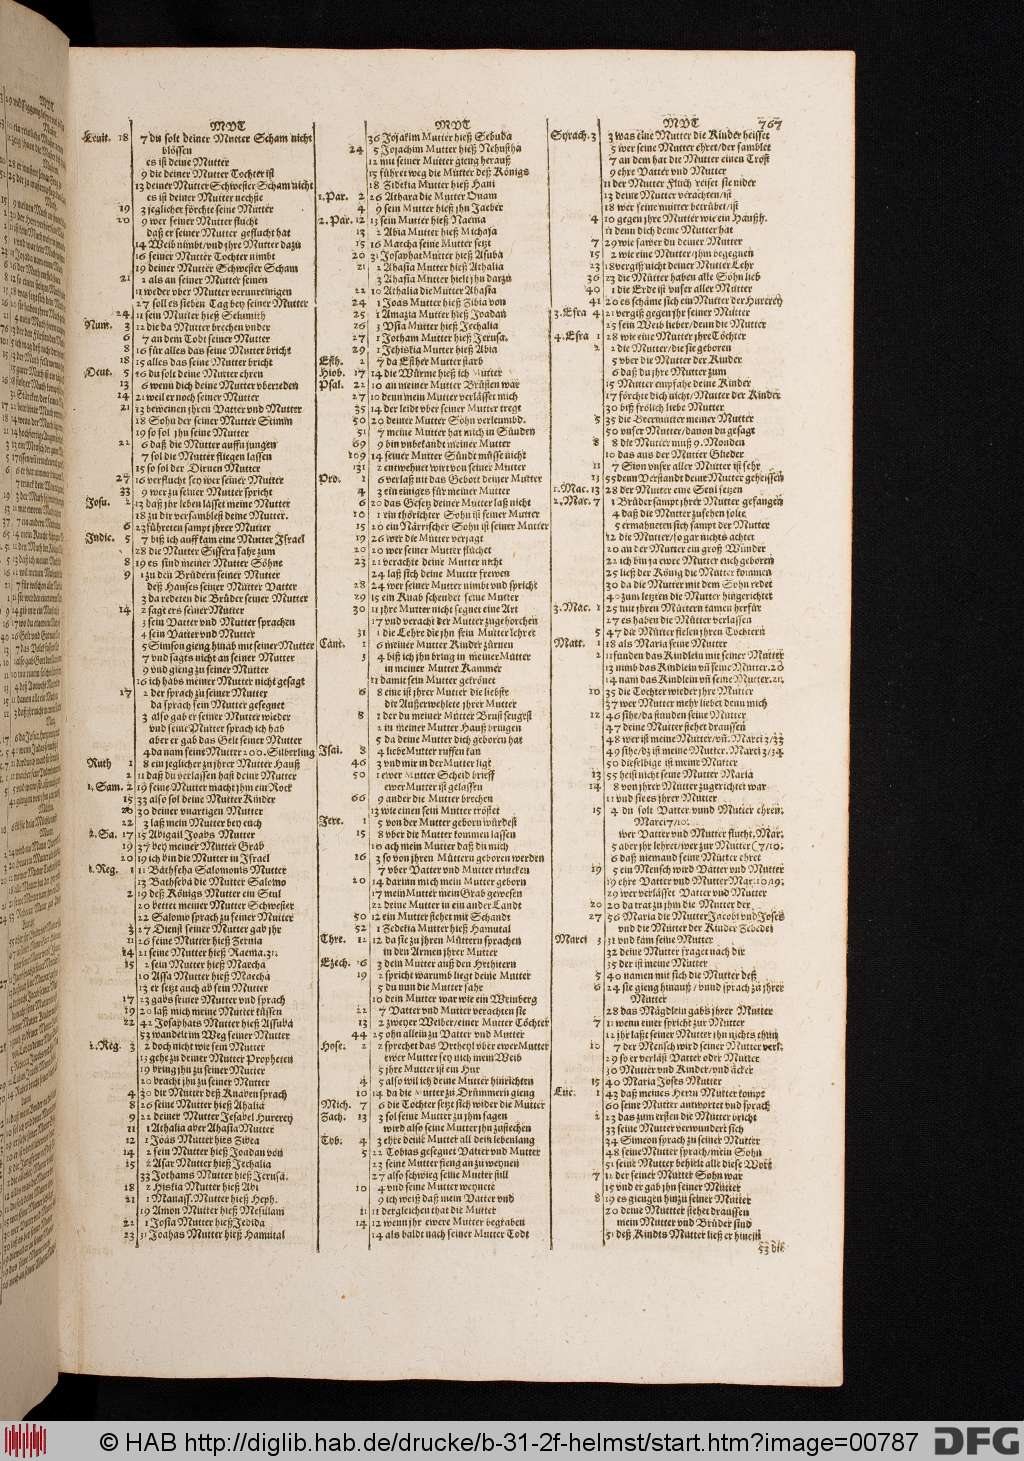 MVT
Leuit. 18 7 du solt deiner Mutter Scham nicht
blössen
es ist deine Mutter
9 die deiner Mutter Tochter ist
13 deiner Mutter Schwester Scham nicht
es ist deiner Mutter nechste
19 3 jeglicher förchte seine Mutter
20 9 wer seiner Mutter flucht
daß er seiner Mutter geflucht hat
14 Weib nimbt/vnd jhre Mutter dazu
16 seiner Mutter Tochter nimbt
19 deiner Mutter Schwester Scham
21 2 als an seiner Mutter seinen
11 weder vber Mutter verunreinigen
27 soll es sieben Tag bey seiner Mutter
24 11 sein Mutter hieß Selomith
Num. 3 12 die da Mutter brechen vnder
6 7 an dem Todt seiner Mutter
8 16 für alles das seine Mutter bricht
18 15 alles das seine Mutter bricht
Deut. 5 16 du solt deine Mutter ehren
13 6 wenn dich deine Mutter vberreden
14 21 weil er noch seiner Mutter
21 13 beweinen jhren Vatter vnd Mutter
18 Sohn der seiner Mutter Stimm
19 so sol jhn seine Mutter
22 6 daß die Mutter auff jungen
7 sol die Mutter fliegen lassen
15 so sol der Dirnen Mutter
27 16 verflucht sey wer seiner Mutter
33 9 wer zu seiner Mutter spricht
Josu. 2 13 daß jhr leben lasset meine Mutter
18 zu dir versamblest deine Mutter.
6 23 führeten sampt jhrer Mutter
Judic. 5 7 biß ich auff kam eine Mutter Israel
28 die Mutter Sissera sahe zum
8 19 es sind meiner Mutter Söhne
9 1 zu den Brüdern seiner Mutter
deß Hauses seiner Mutter Vatter
3 da redeten die Brüder seiner Mutter
14 2 sagt ers seiner Mutter
3 sein Vatter vnd Mutter sprachen
4 sein Vatter vnd Mutter
5 Simson gieng hinab mit seiner Mutter
7 vnd sagts nicht an seiner Mutter
9 vnd gieng zu seiner Mutter
16 ich habs meiner Mutter nicht gesagt
17 2 der sprach zu seiner Mutter
da sprach sein Mutter gesegnet
3 also gab er seiner Mutter wieder
vnd seine Mutter sprach ich hab
aber er gab das Gelt seiner Mutter
4 da nam seine Mutter 200. Silberling
Ruth 1 8 ein jeglicher zu jhrer Mutter Hauß
2 11 daß du verlassen hast deine Mutter
1. Sam. 2 19 seine Mutter macht jhm ein Rock
15 33 also sol deine Mutter Kinder
20 30 deiner vnartigen Mutter
22 3 laß mein Mutter bey euch
2. Sa. 17 15 Abigail Joabs Mutter
19 37 bey meiner Mutter Grab
20 19 ich bin die Mutter in Israel
1. Reg. 1 11 Bathseba Salomonis Mutter
13 Bathseba die Mutter Salomo
2 19 deß Königs Mutter ein Stul
20 bettet meiner Mutter Schwester
22 Salomo sprach zu seiner Mutter
3 27 Dienst seiner Mutter gab jhr
11 26 seine Mutter hieß Zernia
14 21 seine Mutter hieß Naema. 31.
15 2 sein Mutter hieß Maecha
10 Assa Mutter hieß Maecha
13 er setzt auch ab sein Mutter
17 23 gabs seiner Mutter vnd sprach
19 20 laß mich meine Mutter küssen
22 42 Josaphats Mutter hieß Assuba
53 wandelt im Weg seiner Mutter
2. Reg. 3 2 doch nicht wie sein Mutter
13 gehe zu deiner Mutter Propheten
19 bring jhn zu seiner Mutter
20 bracht jhn zu seiner Mutter
4 30 die Mutter deß Knaben sprach
8 26 seine Mutter hieß Athalia
9 22 deiner Mutter Jesabel Hurerey
11 1 Athalia aber Ahasia Mutter
12 1 Joas Mutter hies Zibea
14 2 sein Mutter hieß Joadan von
15 2 Asar Mutter hieß Jechalia
33 Jothams Mutter hieß Jerusa.
18 2 Hiskia Mutter hieß Abi
21 1 Manass. Mutter hieß Heph.
19 Amon Mutter hieß Mesullam
22 1 Josia Mutter hieß Jedida
23 31 Joahas Mutter hieß Hamutal
MVT
36 Jojakim Mutter hieß Sebuda
24 5 Jojachim Mutter hieß Nehustha
12 mit seiner Mutter gieng herauß
15 führet weg die Mutter deß Königs
18 Zidekia Mutter hieß Hani
1. Par. 2 26 Athara die Mutter Onam
4 9 sein Mutter hieß jhn Jaebez
2. Par. 12 13 sein Mutter hieß Naema
13 2 Abia Mutter hieß Michaja
15 16 Maecha seine Mutter setzt
20 31 Josaphat Mutter hieß Asuba
21 2 Ahasia Mutter hieß Athalia
3 Ahasia Mutter hielt jhn darzu
22 10 Athalia die Mutter Ahasia
24 1 Joas Mutter hieß Zibia von
25 1 Amazia Mutter hieß Joadan
26 3 Vsia Mutter hieß Jechalia
27 1 Jotham Mutter hieß Jerusa.
29 1 Jehiskia Mutter hieß Abia
Esth. 2 7 da Esther Mutter starb
Hiob. 17 14 die Würme hieß ich Mutter
Psal. 22 10 an meiner Mutter Brüsten war
27 10 denn mein Mutter verlässet mich
35 14 der leidt vber seiner Mutter tregt
50 20 deiner Mutter Sohn verleumbd.
51 7 meine Mutter hat mich in Sünden
69 9 bin vnbekandt meiner Mutter
109 14 seiner Mutter Sünde müsse nicht
131 2 entwehnet wirt von seiner Mutter
Pro. 1 6 verlaß nit das Gebott deiner Mutter
4 3 ein einiges für meiner Mutter
6 20 das Gesetz deiner Mutter laß nicht
10 1 ein thörichter Sohn ist seiner Mutter
15 20 ein Närrischer Sohn ist seiner Mutter
19 26 wer die Mutter verjagt
20 20 wer seiner Mutter fluchet
23 22 verachte deine Mutter nicht
24 laß sich deine Mutter frewen
28 24 wer seiner Mutter nimbt vnd spricht
29 15 ein Knab schendet seine Mutter
30 11 jhre Mutter nicht segnet eine Art
17 vnd veracht der Mutter zugehorchen
31 1 die Lehre die jhn sein Mutter lehret
Cant. 1 6 meiner Mutter Kinder zürnen
3 4 biß ich jhn bring in meiner Mutter
in meiner Mutter Kammer
11 damit sein Mutter gekrönet
6 8 eine ist jhrer Mutter die liebste
die Außerwehlete jhrer Mutter
8 1 der du meiner Mutter Brust seugest
2 in meiner Mutter Hauß bringen
5 da deine Mutter dich geboren hat
Isai. 8 4 liebe Mutter ruffen kan
46 3 vnd mir in der Mutter ligt
50 1 ewer Mutter Scheid brieff
ewer Mutter ist gelassen
66 9 ander die Mutter brechen
13 wie einen sein Mutter tröstet
Jere. 1 5 von der Mutter geborn würdest
15 8 vber die Mutter kommen lassen
10 ach mein Mutter daß du mich
16 3 so von jhren Müttern geboren werden
7 vber Vatter vnd Mutter trincken
20 14 darinn mich mein Mutter geborn
17 mein Mutter mein Grab gewesen
22 deine Mutter in ein ander Landt
50 12 ein Mutter stehet mit Schandt
52 1 Zedekia Mutter hieß Hamutal
Thre. 12 12 da sie zu jhren Müttern sprachen
in den Armen jhrer Mutter
Ezech. 16 3 dein Mutter auß den Hethitern
19 2 spricht warumb liegt deine Mutter
5 du nun die Mutter sahe
10 dein Mutter war wie ein Weinberg
22 7 Vatter vnd Mutter verachten sie
13 2 zweyer Weiber/einer Mutter Töchter
44 25 ohn allein zu Vatter vnd Mutter
Hose. 2 2 sprechet das Vrtheyl vber ewer Mutter
ewer Mutter sey nich mein Weib
5 jhre Mutter ist ein Hur
4 5 also wil ich deine Mutter hinrichten
10 14 da die Mutter zu Drümmern gieng
Mich. 7 6 die Tochter setzt sich wider die Mutter
Zach. 13 3 sol seine Mutter zu jhm sagen
wird also seine Mutter jhn zustechen
Tob. 4 3 ehre deine Mutter all dein lebenlang
5 22 Tobias gesegnet Vatter vnd Mutter
23 seine Mutter fieng an zu weynen
27 also schwieg seine Mutter still
10 4 vnd seine Mutter weynete
9 ich weiß daß mein Vatter vnd
11 11 dergleichen that die Mutter
14 12 wenn jhr ewere Mutter begraben
14 als baldt nach seiner Mutter Todt
MVT 767
Syrach. 3 3 was eine Mutter die Kinder heisset
5 wer seine Mutter ehret/der samblet
7 an dem hat die Mutter einen Trost
9 ehre Vatter vnd Mutter
11 der Mutter Fluch reiset sie nider
13 deine Mutter verachten/ist
18 wer seine mutter betrübet/ist
4 10 gegen jhre Mutter wie ein Haußh.
11 denn dich deine Mutter hat
7 29 wie sawer du deiner Mutter
15 2 wie eine Mutter/jhm begegnen
23 18 vergiß nicht deiner Mutter Lehr
36 23 die Mütter haben alle Söhn lieb
40 1 die Erde ist vnser aller Mutter
41 20 es schäme sich ein Mutter der Hurerey
3. Esra 4 21 vergiß gegen jhr seiner Mutter
25 sein Weib lieber/denn die Mutter
4. Esra 1 28 wie eine Mutter jhre Töchter
2 2 die Mutter/die sie geboren
5 vber die Mutter der Kinder
6 daß du jhre Mutter zum
15 Mutter empfahe deine Kinder
17 förchte dich nicht/Mutter der Kinder
30 biß frölich liebe Mutter
5 35 die Beermutter meiner Mutter
50 vnser Mutter/dauon du gesagt
8 8 die Mutter muß 9. Monden
10 das aus der Mutter Glieder
11 7 Sion vnser aller Mutter ist sehr
13 55 denn Verstandt deine Mutter geheissen
1. Mac. 13 28 der Mutter eine Seul setzen
2. Mac. 7 1 Brüder sampt jhrer Mutter gefangen
4 daß die Mutter zusehen solte
5 ermahneten sich sampt der Mutter
12 die Mutter/so gar nichts achtet
20 an der Mutter ein groß Wunder
22 ich bin ja ewe Mutter euch geboren
25 ließ der König die Mutter kommen
30 da die Mutter mit dem Sohn redet
40 zum letzten die Mutter hingerichtet
3. Mac. 1 25 mit jhren Müttern kamen herfür
27 es haben die Mütter verlassen
5 47 die Mütter fielen jhren Töchtern
Matt. 1 18 als Maria seine Mutter
2 11 funden das Kindlein mit seiner Mutter
13 nimb das Kindlein vñ seine Mutter. 20
14 nam das Kindlein vñ seine Mutter. 21.
10 35 die Tochter wieder jhre Mutter
37 wer Mutter mehr liebet denn mich
12 46 sihe/da stunden seine Mutter
47 deine Mutter stehet draussen
48 wer ist meine Mutter/vñ. Marci 3/33
49 sihe/dz ist meine Mutter. Marci 3/34
50 dieselbige ist meine Mutter
13 55 heist nicht seine Mutter Maria
14 8 von jhrer Mutter zugerichtet war
11 vnd sie es jhrer Mutter
15 4 du solt Vatter vnnd Mutter ehren.
Marci 7/10.
wer Vatter vnd Mutter flucht. Mar.
5 aber jhr lehret/wer zur Mutter (7/10.
6 daß niemand seine Mutter ehret
19 5 ein Mensch wird Vatter vnd Mutter
19 ehre Vatter vnd Mutter Mar. 10/19.
29 wer verlässet Vatter vnd Mutter
20 20 da trat zu jhm die Mutter der
27 56 Maria die Mutter Jacobi vnd Joses
vnd die Mutter der Kinder Zebedei
Marci 3 31 vnd kam seine Mutter
32 deine Mutter fraget nach dir
35 der ist meine Mutter
5 40 namen mit sich die Mutter deß
6 24 sie gieng hinauß/vnnd sprach zu jhrer
Mutter
28 das Mägdlein gabs jhrer Mutter
7 11 wenn einer spricht zur Mutter
12 jhr laßt seiner Mutter jhn nichts thun
10 7 der Mensch wird seiner Mutter verl.
29 so er verläst Vatter oder Mutter
30 Mutter vnd Kinder/vnd äcker
15 40 Maria Joses Mutter
Luc. 1 43 daß meines Herrn Mutter kompt
60 seine Mutter antwortet vnd sprach
2 23 das zum ersten die Mutter bricht
33 seine Mutter verwundert sich
34 Simeon sprach zu seiner Mutter
48 seine Mutter sprach/mein Sohn
51 seine Mutter behielt alle diese Wort
7 12 der seiner Mutter Sohn war
15 vnd er gab jhn seiner Mutter
8 19 es giengen hinzu seiner Mutter
20 deine Mutter stehet draussen
mein Mutter vnd Brüder sind
51 deß Kindts Mutter ließ er hinein
53 die
© HAB http://diglib.hab.de/drucke/b-31-2f-helmst/start.htm?image=00787
DFG